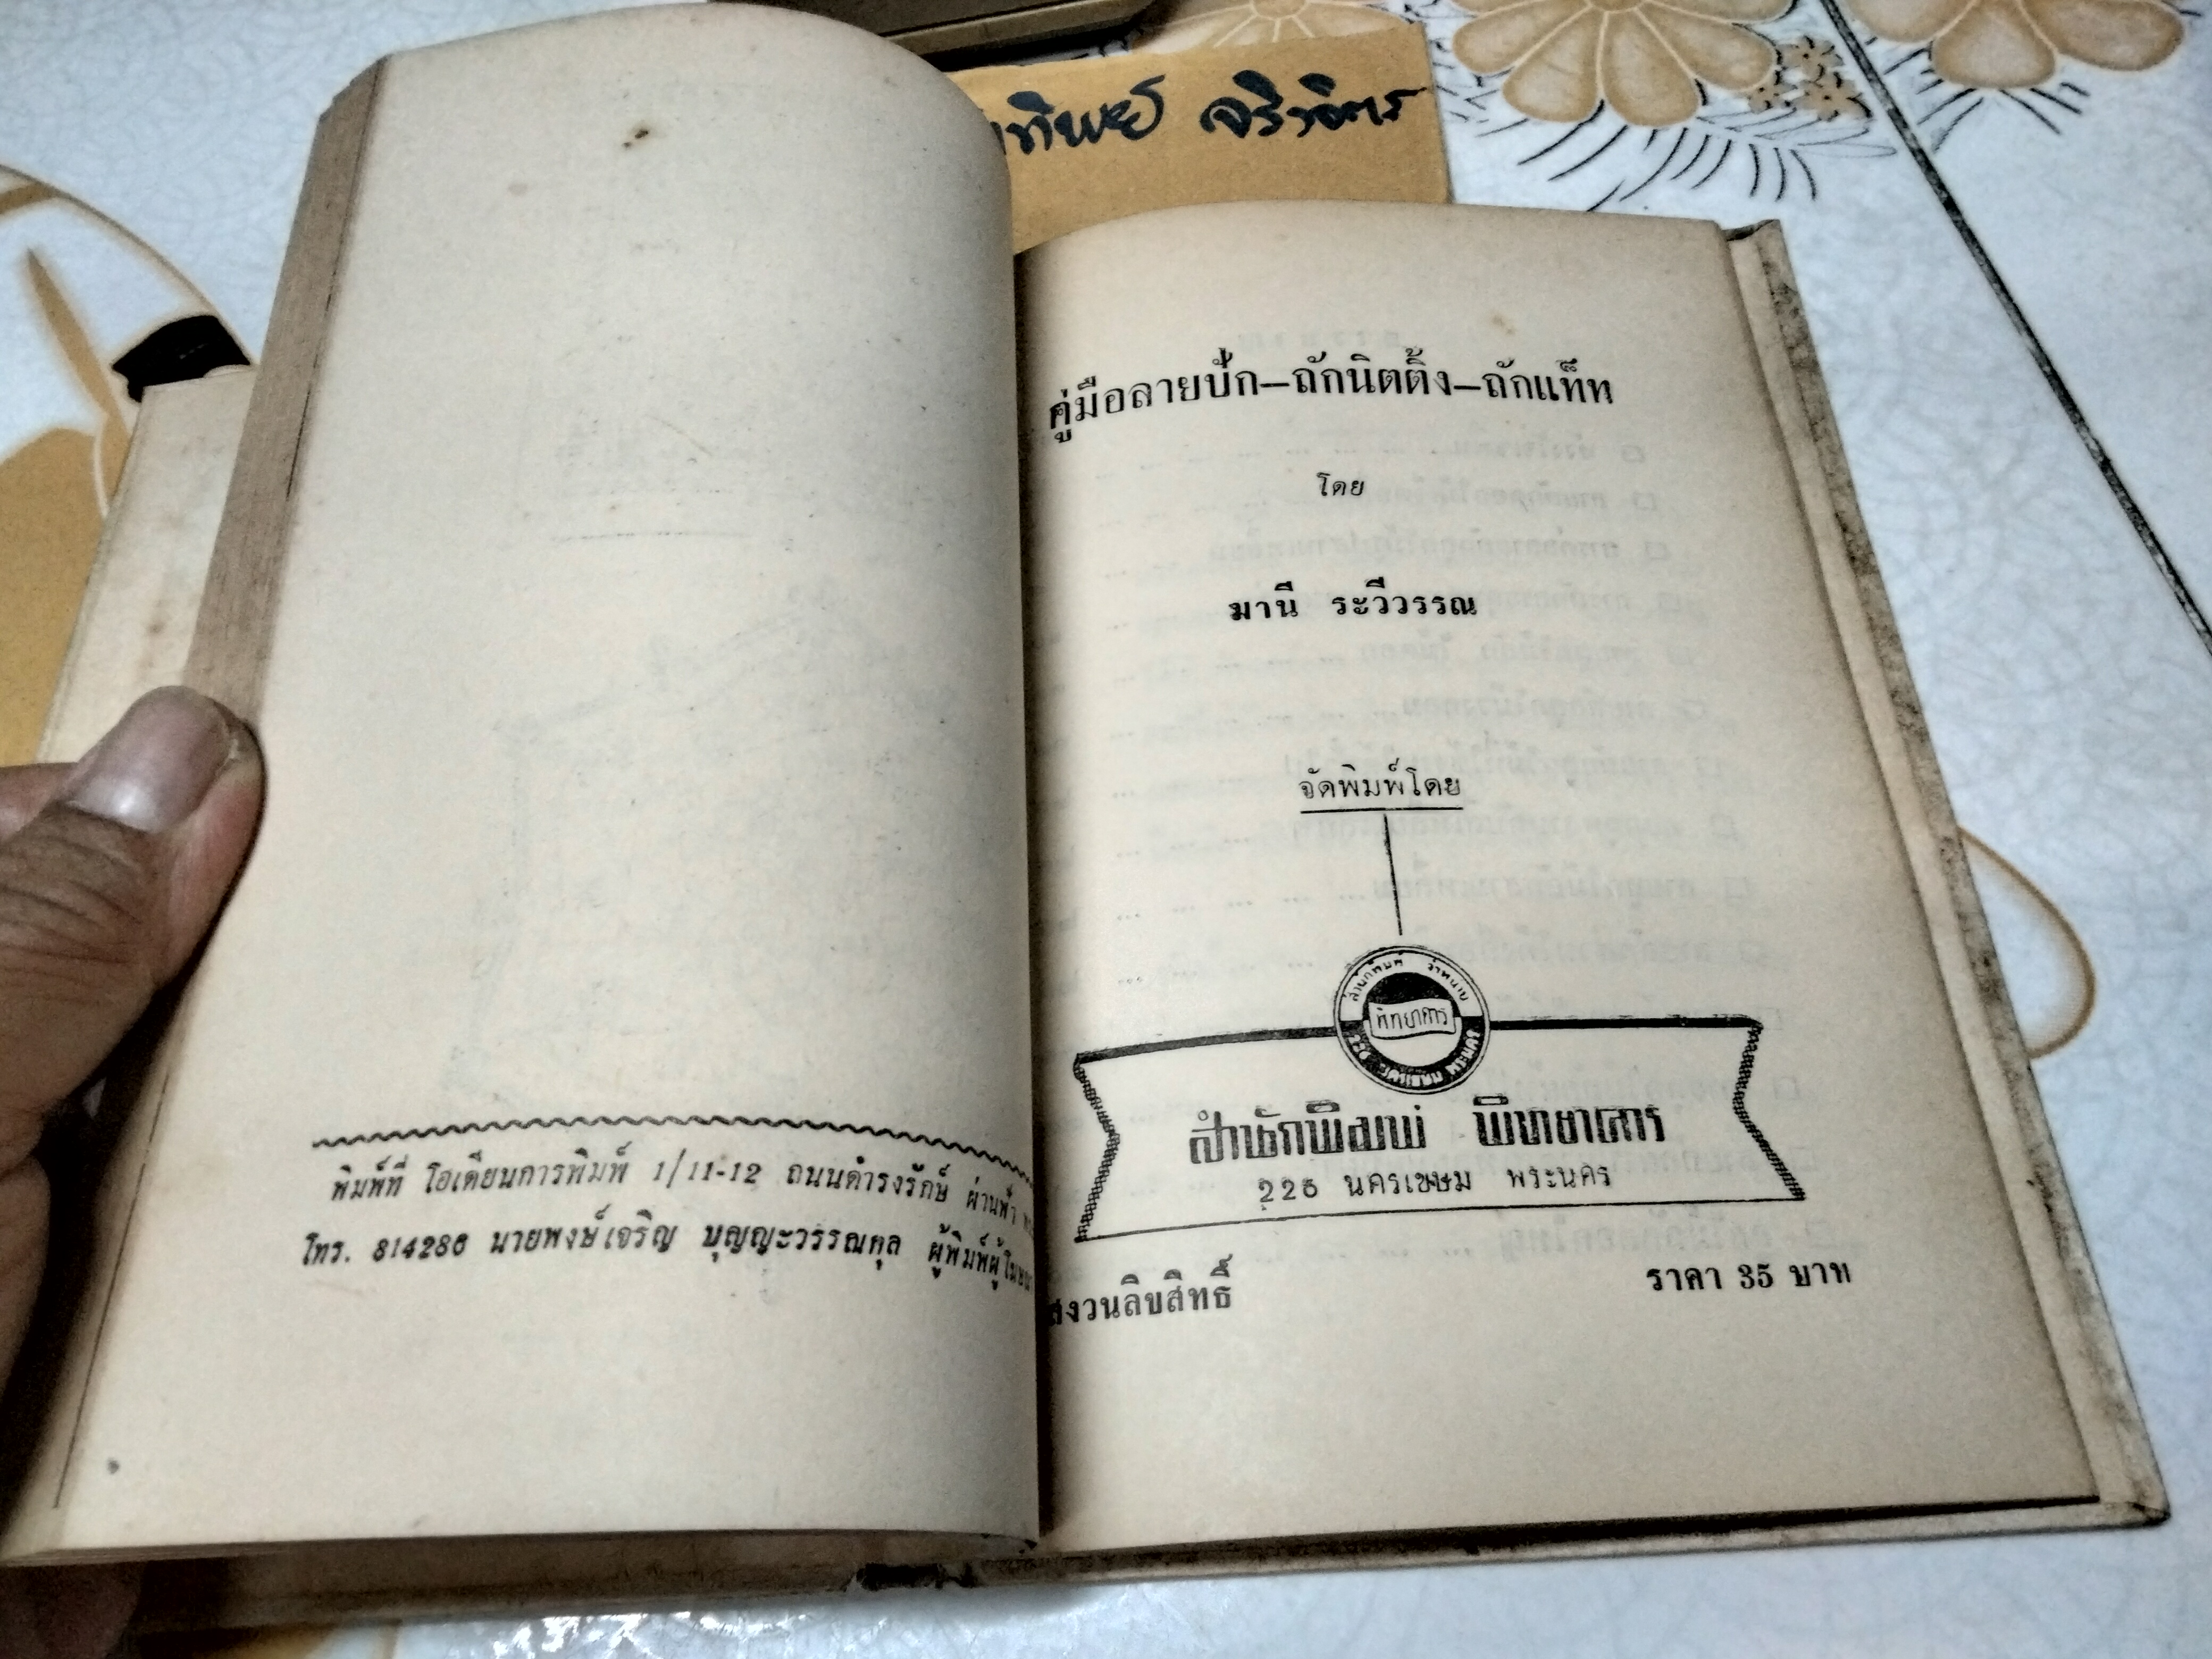 จริงจิตร
พิมพ์ที่ โอเดียนการพิมพ์ 1/11-12 ถนนดำรงรักษ์ ผ่านฟ้า
โทร. 814286 นายพงษ์เจริญ บุญญะวรรณกุล ผู้พิมพ์ผู้โฆษณา
คู่มือลายปัก–ถักนิตติ้ง–ถักแท็ท
โดย
มานี ระวีวรรณ
จัดพิมพ์โดย
สำนักพิมพ์ จำหน่าย
พิทยาคาร
นครเขษม พระนคร
สำนักพิมพ์ พิทยาคาร
226 นครเขษม พระนคร
สงวนลิขสิทธิ์
ราคา 35 บาท